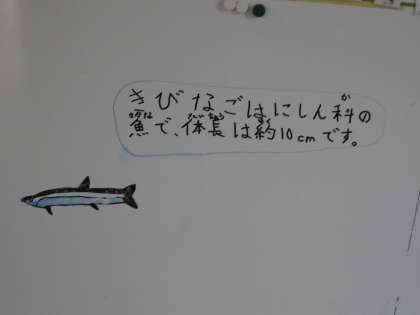 きびなごはにしん科の
魚で、体長は約10cmです。